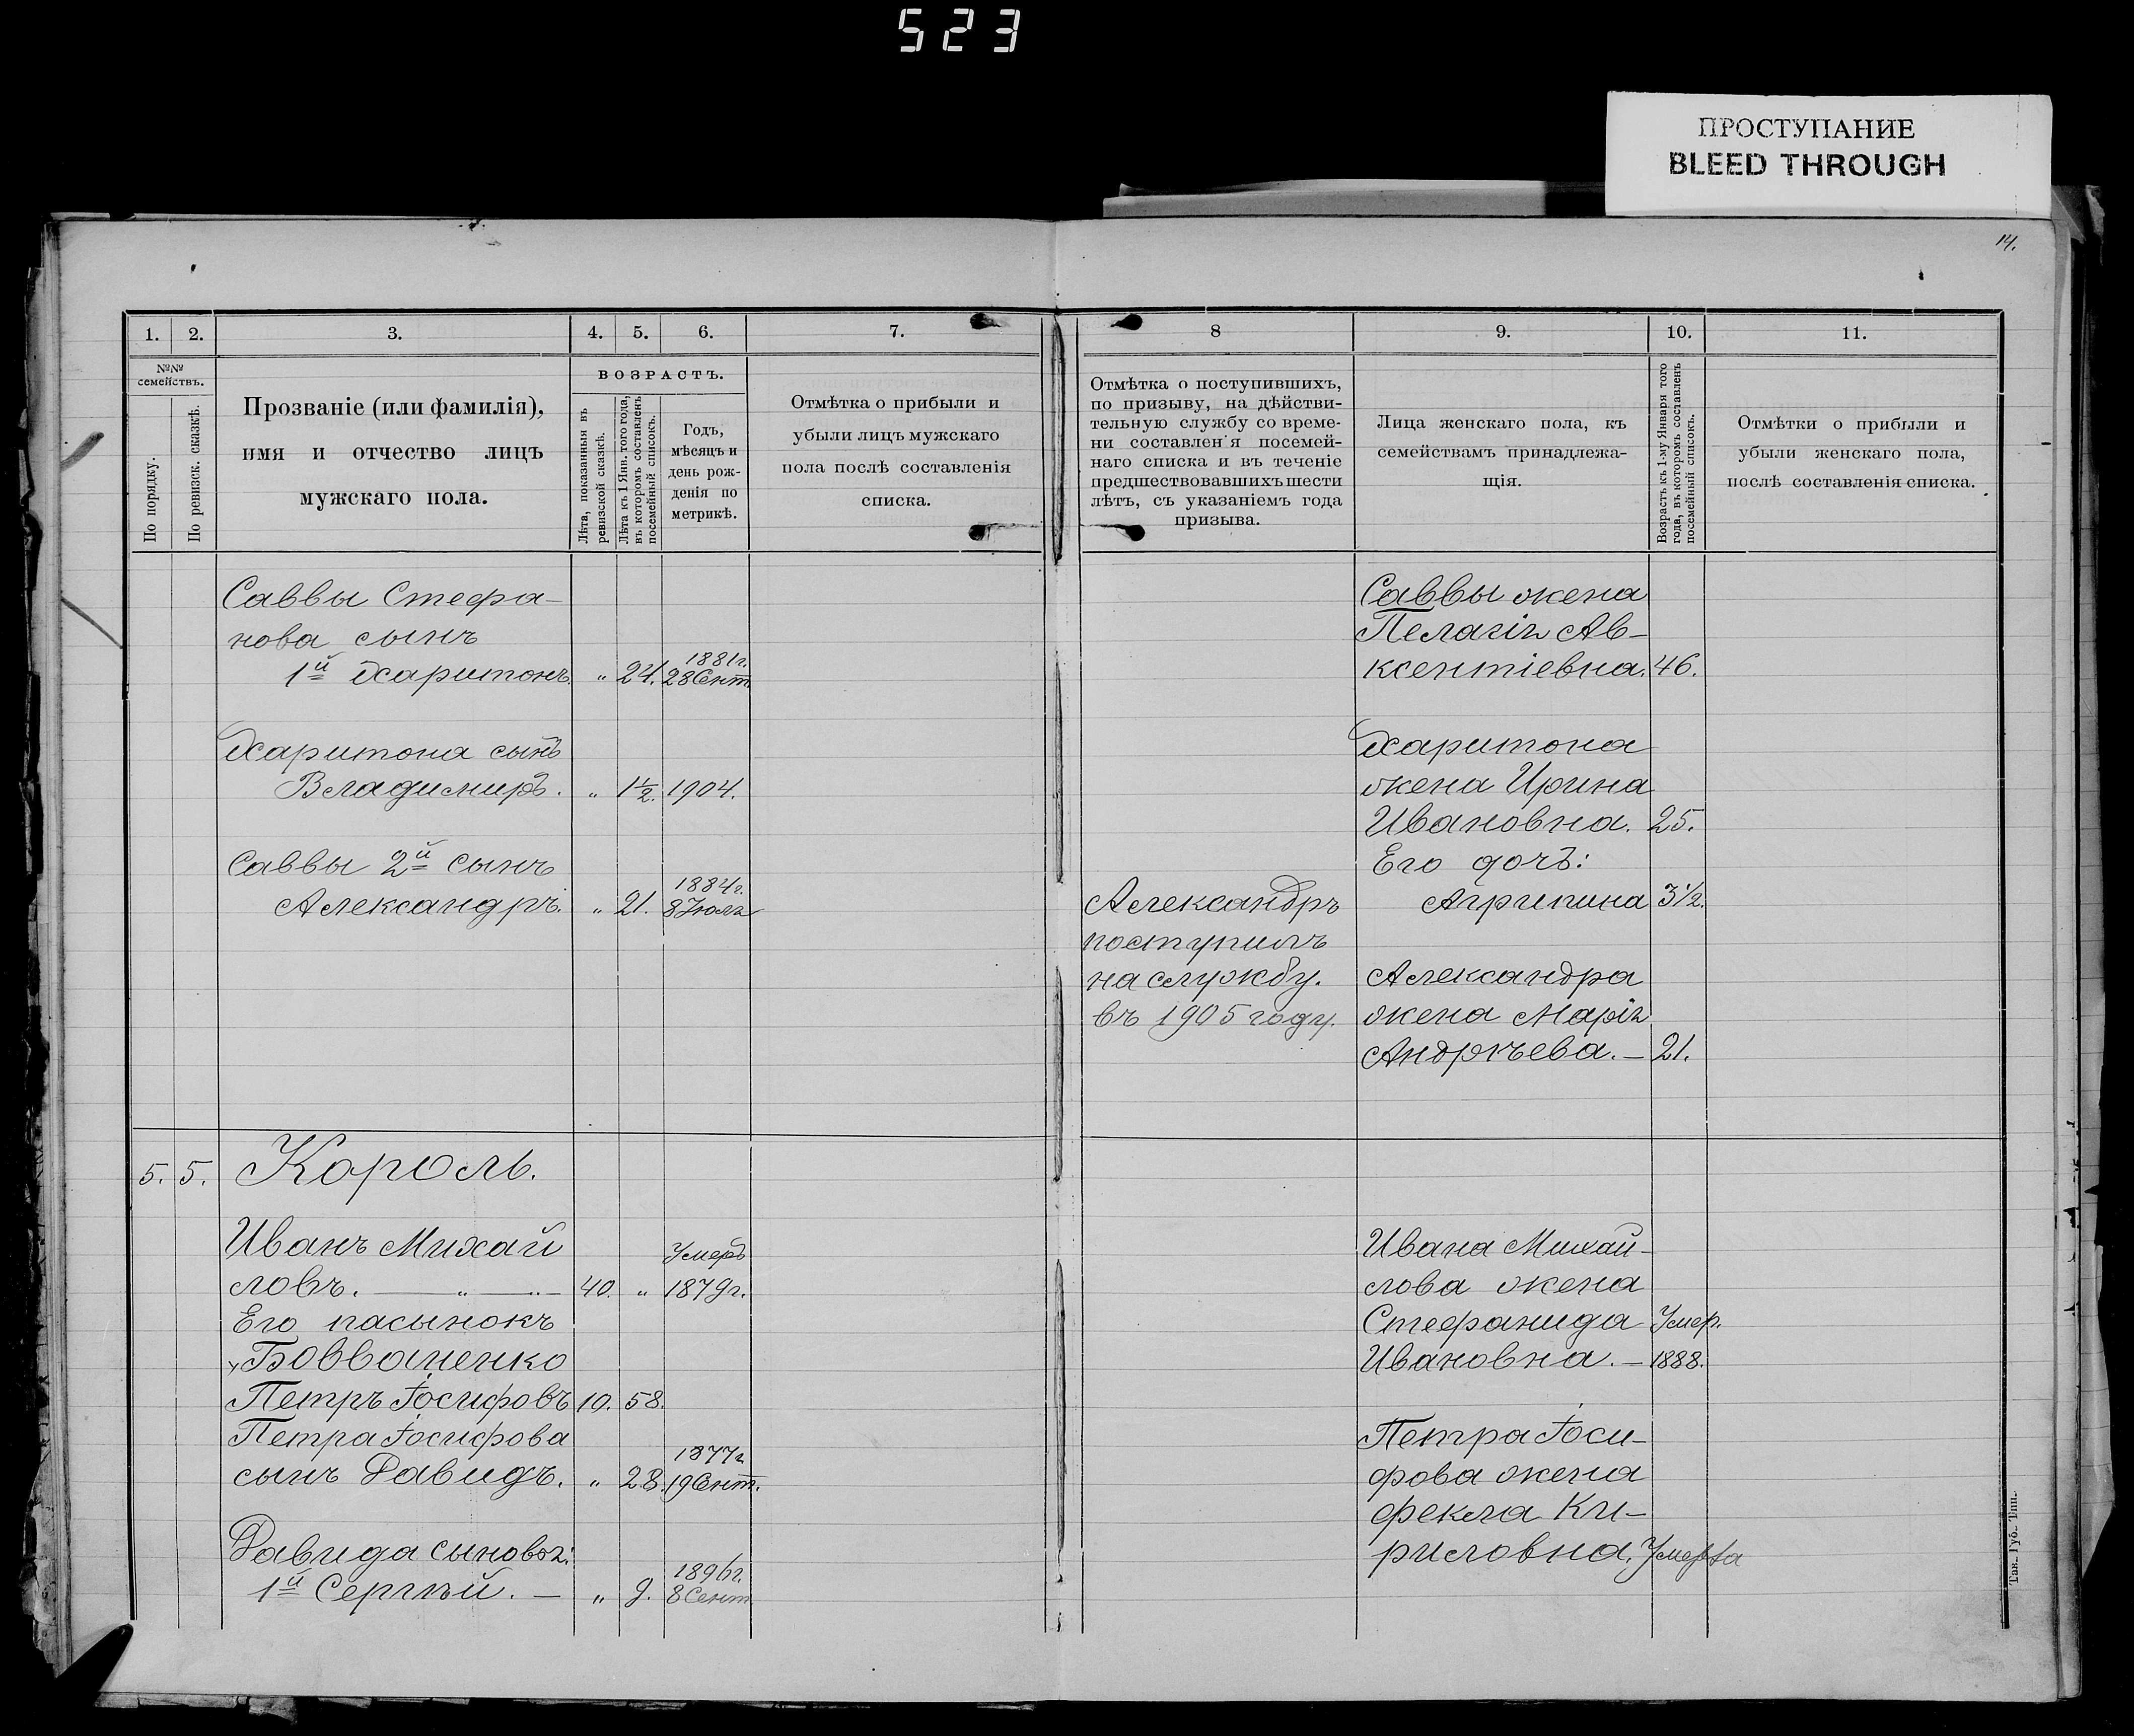 523
ПРОСТУПАНИЕ
BLEED THROUGH
14.
1.
2.
3.
4.
5.
6.
7.
№№ семействъ.
По порядку.
По ревизск. сказкѣ.
Прозваніе (или фамилія),
имя и отчество лицъ
мужскаго пола.
ВОЗРАСТЪ.
Лѣта, показанныя въ
ревизской сказкѣ.
Лѣта къ 1 Янв. того года,
въ которомъ составленъ
посемейный списокъ.
Годъ,
мѣсяцъ и
день рож-
денія по
метрикѣ.
Отмѣтка о прибыли и
убыли лицъ мужскаго
пола послѣ составленія
списка.
Саввы Стефа-
нова сынъ
1й Харитонъ. " 24. 1881г. 28 Сент.
Харитона сынъ
Владимиръ. " 1½. 1904.
Саввы 2й сынъ
Александръ. " 21. 1884г. 8 Іюля
5. 5. Король.
Иванъ Михай
ловъ. — " — " — 40. " Умеръ 1879г.
Его пасынокъ
Бовваненко
Петръ Іосифовъ 10. 58.
Петра Іосифова
сынъ Давидъ. " 28. 1877г 19 Сент.
Давида сыновья:
1й Сергѣй. — " 9. 1896г. 8 Сент
8
9.
10.
11.
Отмѣтка о поступившихъ,
по призыву, на дѣйстви-
тельную службу со време-
ни составленія посемей-
наго списка и въ теченіе
предшествовавшихъ шести
лѣтъ, съ указаніемъ года
призыва.
Лица женскаго пола, къ
семействамъ принадлежа-
щія.
Возрастъ къ 1-му Января того
года, въ которомъ составленъ
посемейный списокъ.
Отмѣтки о прибыли и
убыли женскаго пола,
послѣ составленія списка.
Саввы жена
Пелагія Ав-
ксентіевна. 46.
Харитона
жена Ирина
Ивановна. 25.
Его дочь:
Агрипина 3½.
Александръ
поступилъ
на службу.
въ 1905 году.
Александра
жена Марія
Андрѣева. — 21.
Ивана Михай-
лова жена
Стефанида Умер.
Ивановна. — 1888.
Петра Іоси-
фова жена
Фекла Ки-
риловна. Умерла
Тав. Губ. Тип.